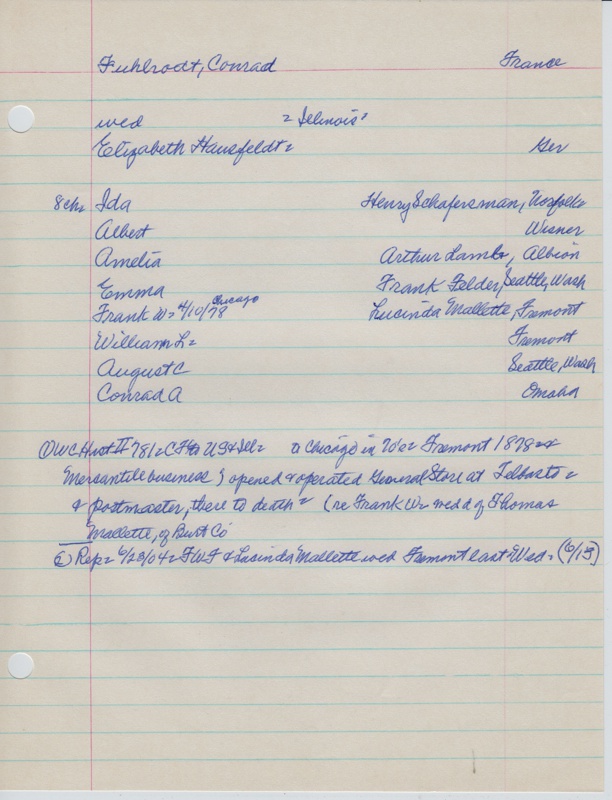 Fuhlrodt, Conrad France
wed = Illinois =
Elizabeth Hausfeldt = Ger
8 ch = Ida Henry Schafersman, Norfolk
Albert Wisner
Amelia Arthur Lamb, Albion
Emma Frank Felder, Seattle, Wash
Frank W = 4/10/78 Chicago Lucinda Mallette, Fremont
William L = Fremont
August C Seattle, Wash
Conrad A Omaha
① WC Hist II 781 = CF to US & Ill = to Chicago in 70's = Fremont 1878 = &
Mercantile business; opened & operated General Store at Telbasta =
& postmaster, there to death = (re Frank W = wed d of Thomas
Mallette, of Burt Co
② Rep = 6/23/04 = FWF & Lucinda Mallette wed Fremont last Wed. (6/15)